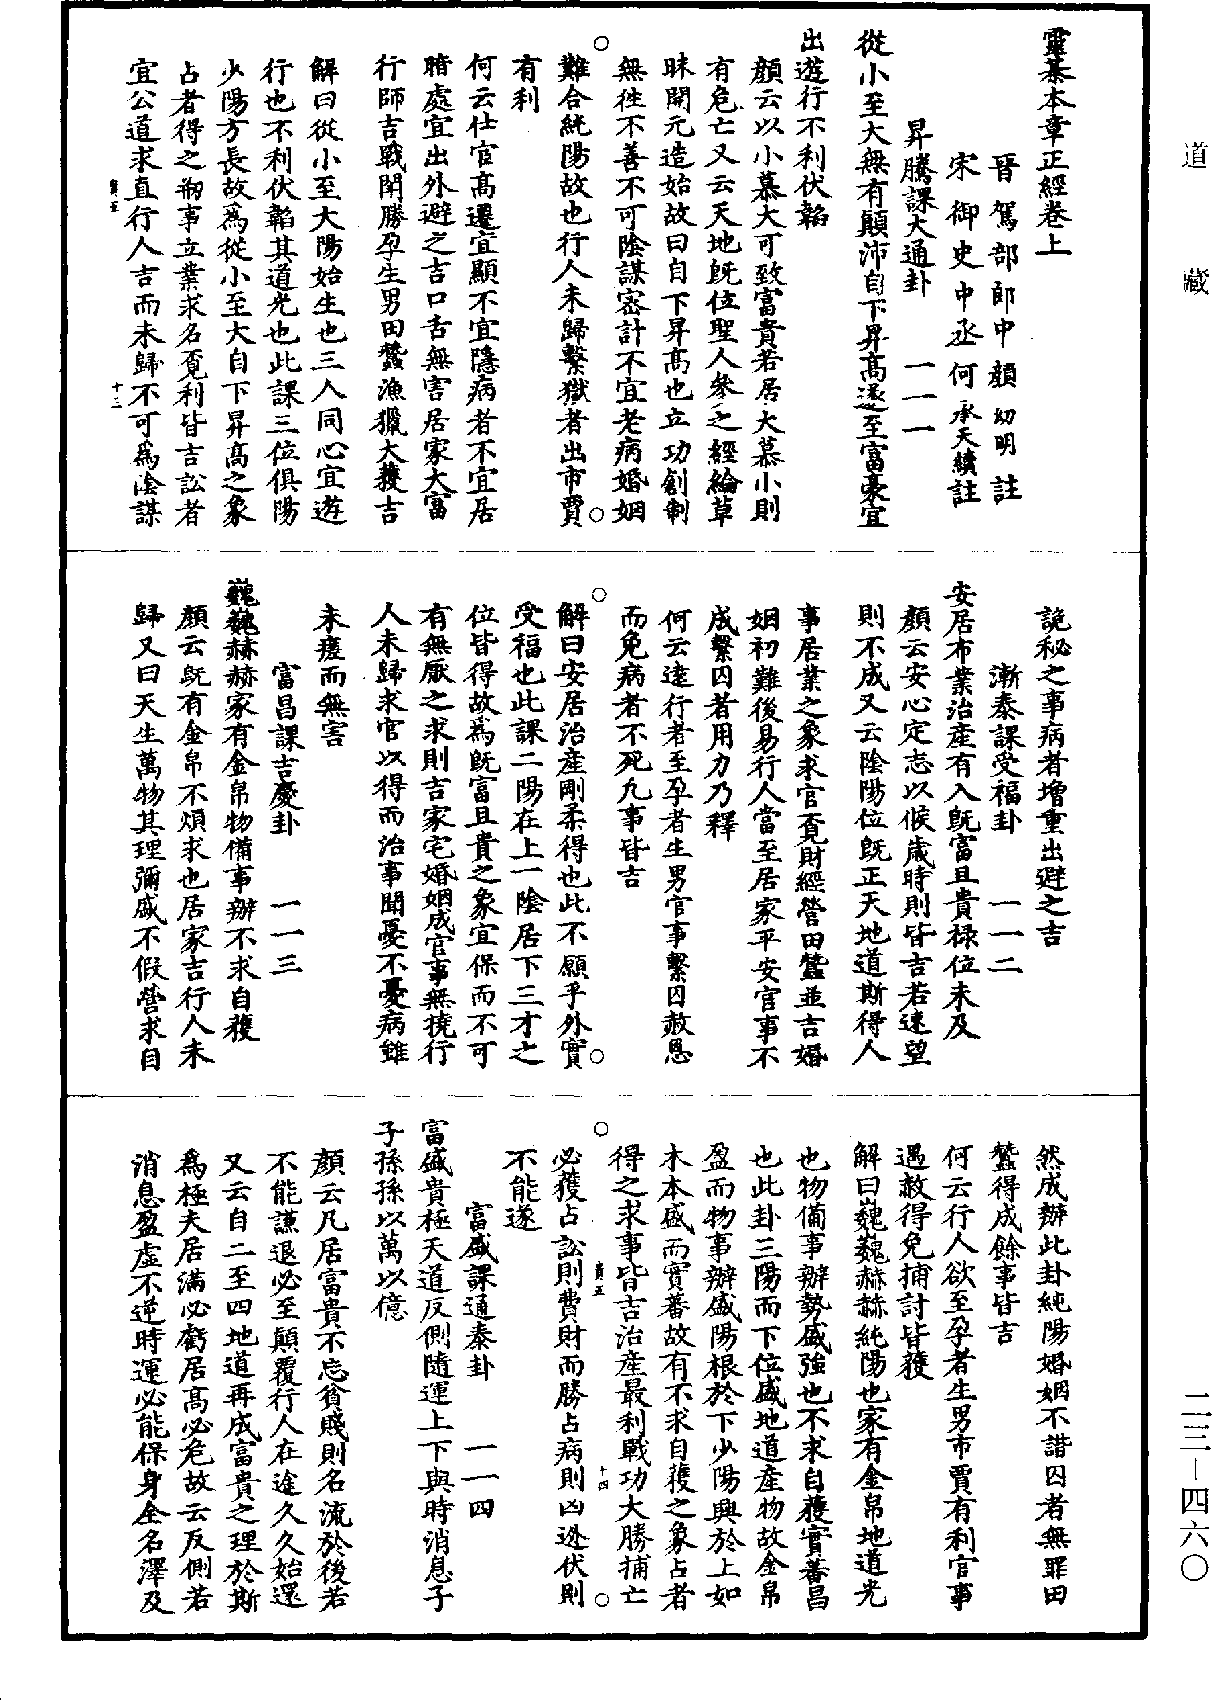 道藏
靈棊本章正經卷上
晉駕部郎中顏幼明註
宋御史中丞何承天續註
昇騰課大通卦　一一一
從小至大無有顛沛自下昇高遂至富豪宜
出遊行不利伏韜
顏云以小慕大可致富貴若居大慕小則
有危亡又云天地旣位聖人參之經綸草
昧開元造始故曰自下昇高也立功創制
無徃不善不可陰謀密計不宜老病婚姻
難合純陽故也行人未歸繫獄者出市賈
有利
何云仕官高遷宜顯不宜隱病者不宜居
暗處宜出外避之吉口舌無害居家大富
行師吉戰鬪勝孕生男田蠶漁獵大獲吉
解曰從小至大陽始生也三人同心宜遊
行也不利伏韜其道光也此課三位俱陽
少陽方長故爲從小至大自下昇高之象
占者得之刱事立業求名覔利皆吉訟者
宜公道求直行人吉而未歸不可爲陰謀
十三
詭秘之事病者增重出避之吉
漸泰課受福卦　一一二
安居布業治產有入旣富且貴祿位未及
顏云安心定志以候歲時則皆吉若速望
則不成又云陰陽位旣正天地道斯得人
事居業之象求官覔財經營田蠶並吉婚
姻初難後易行人當至居家平安官事不
成繫囚者用力乃釋
何云遠行者至孕者生男官事繫囚赦恩
而免病者不死九事皆吉
解曰安居治產剛柔得也此不願乎外實
受福也此課二陽在上一陰居下三才之
位皆得故爲旣富且貴之象宜保而不可
有無厭之求則吉家宅婚姻成官事無撓行
人未歸求官以得而治事聞憂不憂病雖
未瘥而無害
富昌課吉慶卦　一一三
巍巍赫赫家有金帛物備事辦不求自獲
顏云旣有金帛不煩求也居家吉行人未
歸又曰天生萬物其理彌盛不假營求自
然成辦此卦純陽婚姻不諧囚者無罪田
蠶得成餘事皆吉
何云行人欲至孕者生男市賈有利官事
遇赦得免捕討皆獲
解曰巍巍赫赫純陽也家有金帛地道光
也物備事辦勢盛強也不求自獲實蕃昌
也此卦三陽而下位盛地道產物故金帛
盈而物事辦盛陽根於下少陽興於上如
木本盛而實蕃故有不求自獲之象占者
得之求事皆吉治產最利戰功大勝捕亡
必獲占訟則費財而勝占病則凶逃伏則
十四
不能遂
富盛課通泰卦　一一四
富盛貴極天道反側隨運上下與時消息子
子孫孫以萬以億
顏云凡居富貴不忘貧賤則名流於後若
不能謙退必至顛覆行人在途久久始還
又云自二至四地道再成富貴之理於斯
爲極夫居滿必虧居高必危故云反側若
消息盈虛不逆時運必能保身全名澤及
二三－四六〇